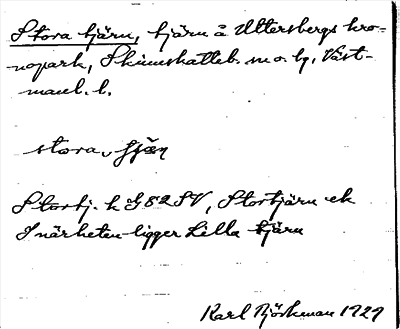 Stora tjärn, tjärn å Uttersbergs kro-
nopark, Skinnskatteb. sn o. bg. Väst-
manl. l.
stora
Stortj. k G 82 SV, Stortjärn ek
I närheten ligger Lilla tjärn
Karl Björkman 1929